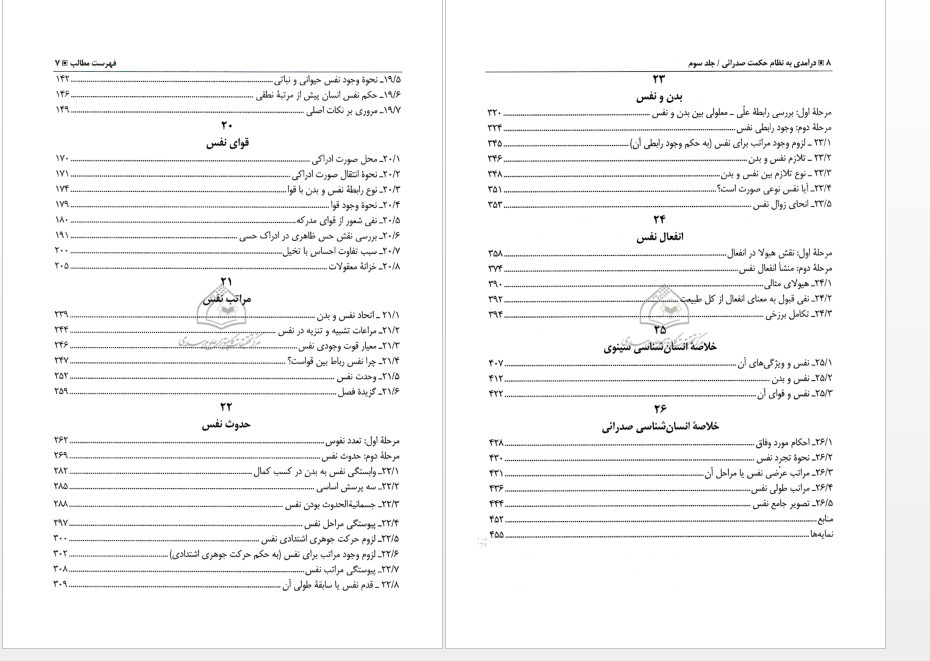 فهرست مطالب ▣ ۷
۱۹/۵ـ نحوهٔ وجود نفس حیوانی و نباتی ۱۴۲
۱۹/۶ـ حکم نفس انسان پیش از مرتبهٔ نطقی ۱۴۶
۱۹/۷ـ مروری بر نکات اصلی ۱۴۹
۲۰
قوای نفس
۲۰/۱ـ محل صورت ادراکی ۱۷۰
۲۰/۲ـ نحوهٔ انتقال صورت ادراکی ۱۷۱
۲۰/۳ـ نوع رابطهٔ نفس و بدن با قوا ۱۷۴
۲۰/۴ـ نحوهٔ وجود قوا ۱۷۹
۲۰/۵ـ نفی شعور از قوای مدرکه ۱۸۰
۲۰/۶ـ بررسی نقش حس ظاهری در ادراک حسی ۱۹۱
۲۰/۷ـ سبب تفاوت احساس با تخیل ۲۰۰
۲۰/۸ـ خزانهٔ معقولات ۲۰۵
۲۱
مراتب نفس
۲۱/۱ ـ اتحاد نفس و بدن ۲۳۹
۲۱/۲ـ مراعات تشبیه و تنزیه در نفس ۲۴۴
۲۱/۳ـ معیار قوت وجودی نفس ۲۴۶
۲۱/۴ـ چرا نفس رباط بین قواست؟ ۲۴۷
۲۱/۵ـ وحدت نفس ۲۵۲
۲۱/۶ـ گزیدهٔ فصل ۲۵۹
۲۲
حدوث نفس
مرحلهٔ اول: تعدد نفوس ۲۶۲
مرحلهٔ دوم: حدوث نفس ۲۶۹
۲۲/۱ـ وابستگی نفس به بدن در کسب کمال ۲۸۲
۲۲/۲ـ سه پرسش اساسی ۲۸۵
۲۲/۳ـ جسمانیةالحدوث بودن نفس ۲۸۸
۲۲/۴ـ پیوستگی مراحل نفس ۲۹۷
۲۲/۵ـ لزوم حرکت جوهری اشتدادی نفس ۳۰۰
۲۲/۶ـ لزوم وجود مراتب برای نفس (به حکم حرکت جوهری اشتدادی) ۳۰۲
۲۲/۷ـ پیوستگی مراتب نفس ۳۰۸
۲۲/۸ ـ قدم نفس یا سابقهٔ طولی آن ۳۰۹
۸ ▣ درآمدی به نظام حکمت صدرائی / جلد سوم
۲۳
بدن و نفس
مرحلهٔ اول: بررسی رابطهٔ علّی ـ معلولی بین بدن و نفس ۳۲۰
مرحلهٔ دوم: وجود رابطی نفس ۳۲۴
۲۳/۱ ـ لزوم وجود مراتب برای نفس (به حکم وجود رابطی آن) ۳۴۵
۲۳/۲ ـ تلازم نفس و بدن ۳۴۶
۲۳/۳ ـ نوع تلازم بین نفس و بدن ۳۴۸
۲۳/۴ـ آیا نفس نوعی صورت است؟ ۳۵۱
۲۳/۵ـ انحای زوال نفس ۳۵۳
۲۴
انفعال نفس
مرحلهٔ اول: نقش هیولا در انفعال ۳۵۸
مرحلهٔ دوم: منشأ انفعال نفس ۳۷۴
۲۴/۱ـ هیولای مثالی ۳۹۰
۲۴/۲ـ نفی قبول به معنای انفعال از کل طبیعت ۳۹۲
۲۴/۳ـ تکامل برزخی ۳۹۴
۲۵
خلاصهٔ انسان‌شناسی سینوی
۲۵/۱ـ نفس و ویژگی‌های آن ۴۰۷
۲۵/۲ـ نفس و بدن ۴۱۲
۲۵/۳ـ نفس و قوای آن ۴۲۲
۲۶
خلاصهٔ انسان‌شناسی صدرائی
۲۶/۱ـ احکام مورد وفاق ۴۲۸
۲۶/۲ـ نحوهٔ تجرد نفس ۴۳۰
۲۶/۳ـ مراتب عرْضی نفس یا مراحل آن ۴۳۱
۲۶/۴ـ مراتب طولی نفس ۴۳۶
۲۶/۵ـ تصویر جامع نفس ۴۴۴
منابع ۴۵۲
نمایه‌ها ۴۵۵